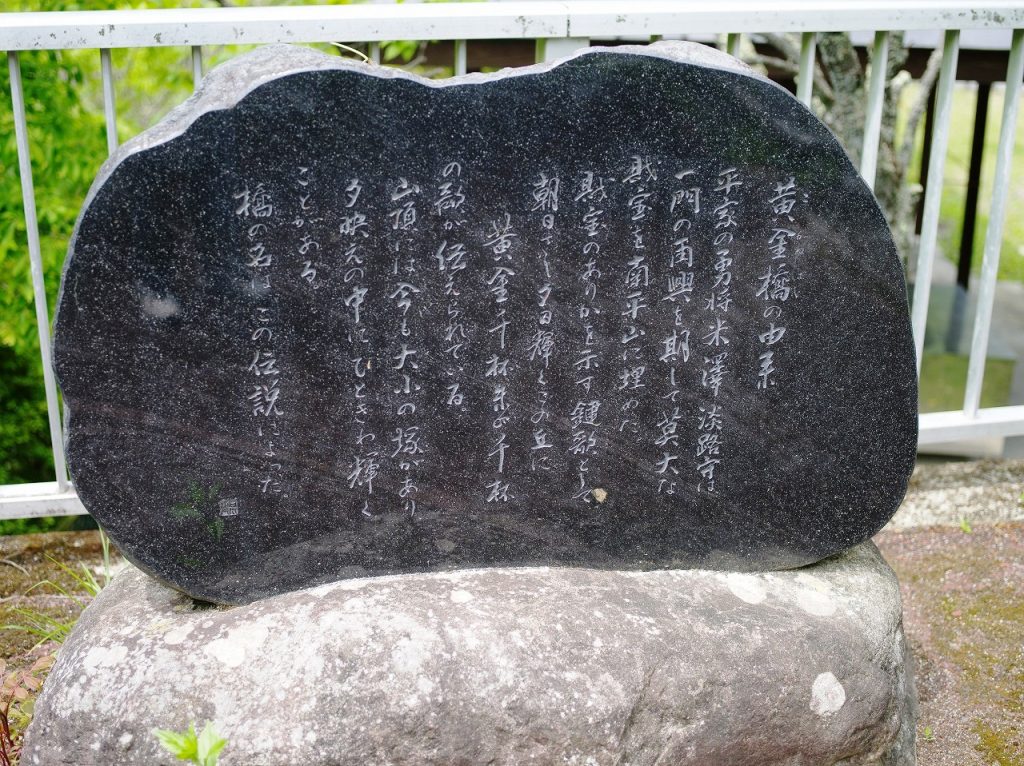 黄金橋の由来
平家の勇将米澤淡路守は
一門の再興を期して莫大な
財宝を南平山に埋めた。
財宝のありかを示す鍵歌として
朝日さし夕日輝くこの丘に
黄金千杯朱が千杯
の歌が伝えられている。
山頂には今も大小の塚があり
夕映えの中にひときわ輝く
ことがある。
橋の名はこの伝説によった。